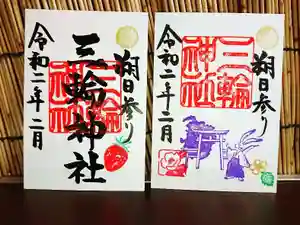 朔日参り
三輪神社
三輪神社
令和二年二月
朔日参り
三輪神社
令和二年二月